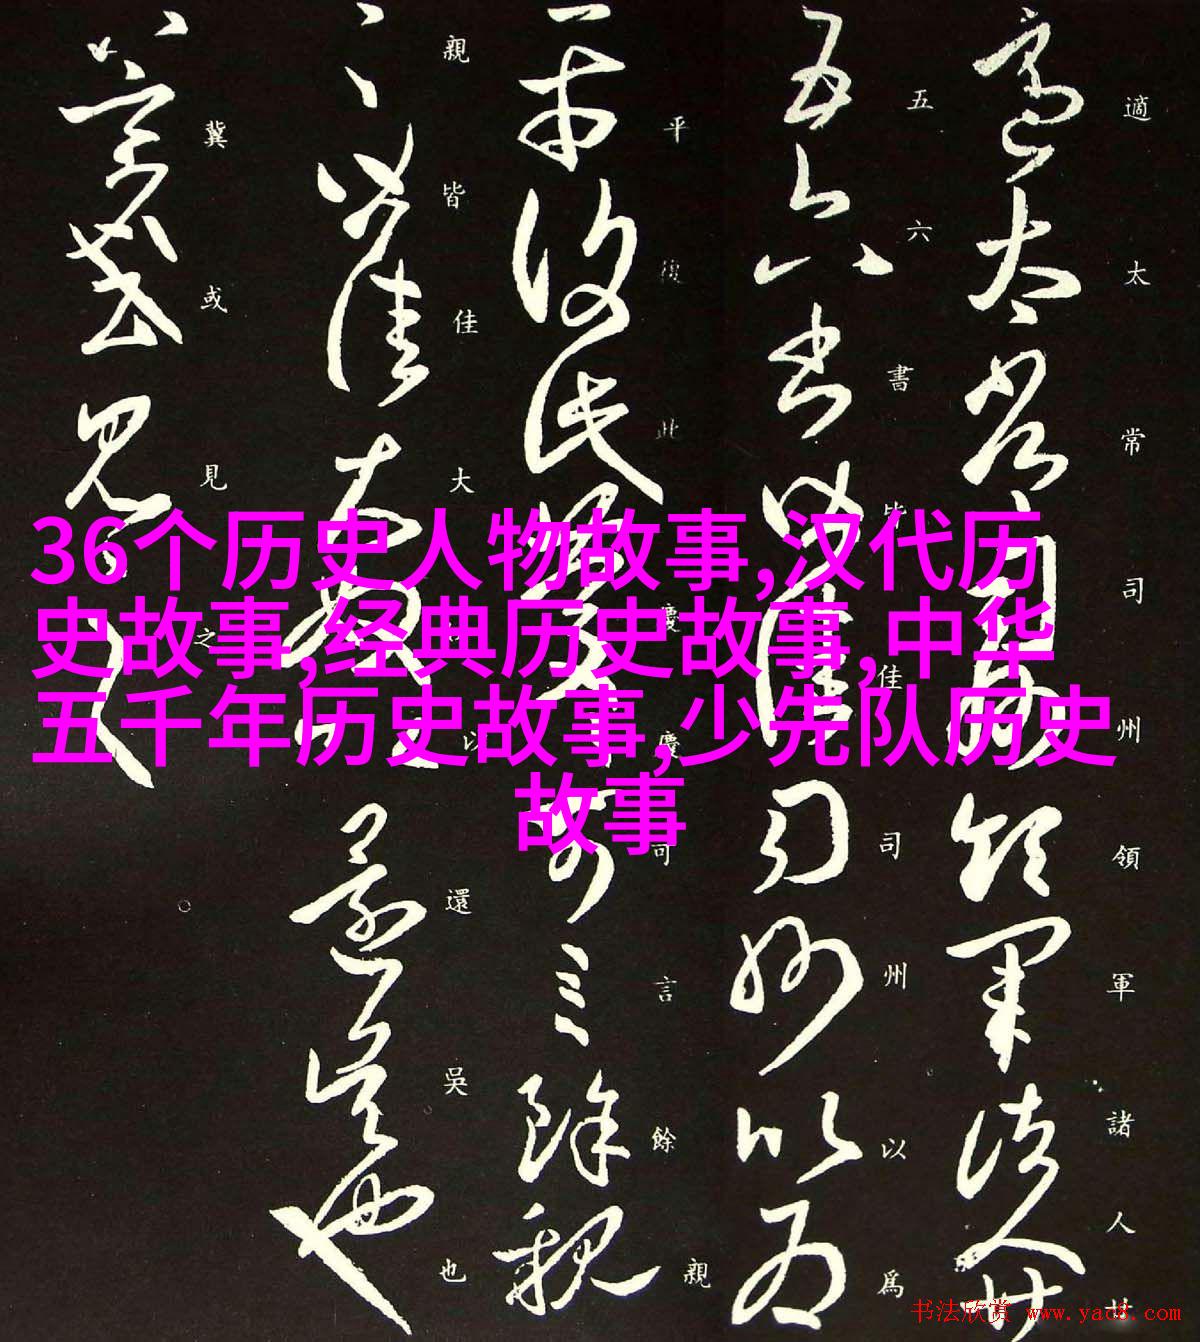 36个历史人物故事,汉代历
史故事,经典历史故事,中华
五千年历史故事,少先队历史
故事
適太常司州領軍諸人廿
五六書皆佳司州以為
平復此慶慶可言餘親
親皆佳大以還吳也
冀或見之
书法欣赏 www.yac8.com